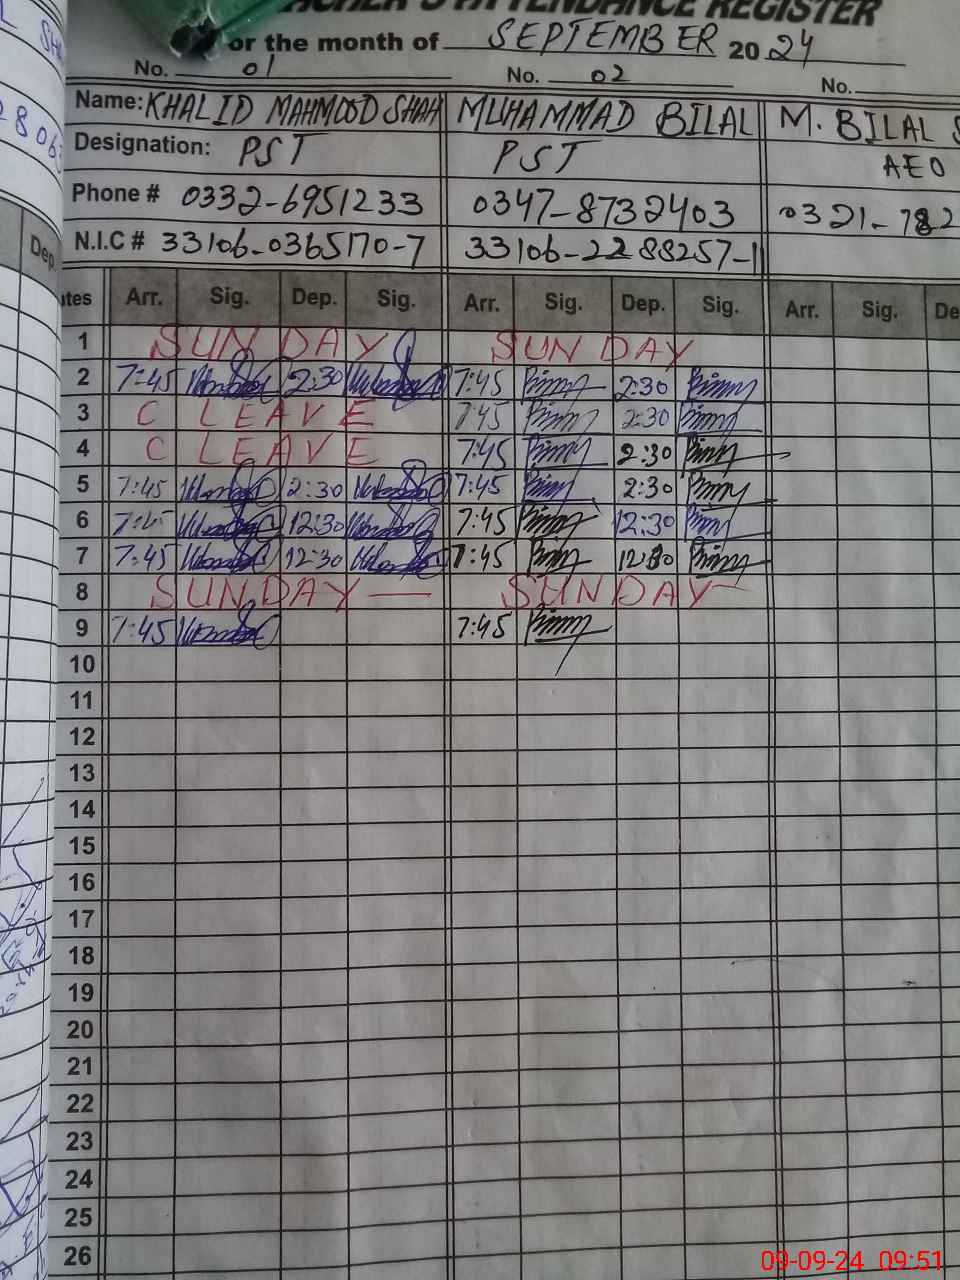 TEACHER'S ATTENDANCE REGISTER
or the month of SEPTEMBER 2024
No. 01 No. 02 No.
Name: KHALID MAHMOOD SHAH MUHAMMAD BILAL M. BILAL S
Designation: PST PST AEO
Phone # 0332-6951233 0347-8732403 0321-782
N.I.C # 33106-0365170-7 33106-2288257-1
Dep.
ates Arr. Sig. Dep. Sig. Arr. Sig. Dep. Sig. Arr. Sig. De
1 SUNDAY SUNDAY
2 7:45 2:30 7:45 2:30
3 C LEAVE 7:45 2:30
4 C LEAVE 7:45 2:30
5 7:45 2:30 7:45 2:30
6 7:45 12:30 7:45 12:30
7 7:45 12:30 7:45 12:30
8 SUNDAY — SUNDAY
9 7:45 7:45
10
11
12
13
14
15
16
17
18
19
20
21
22
23
24
25
26
09-09-24 09:51